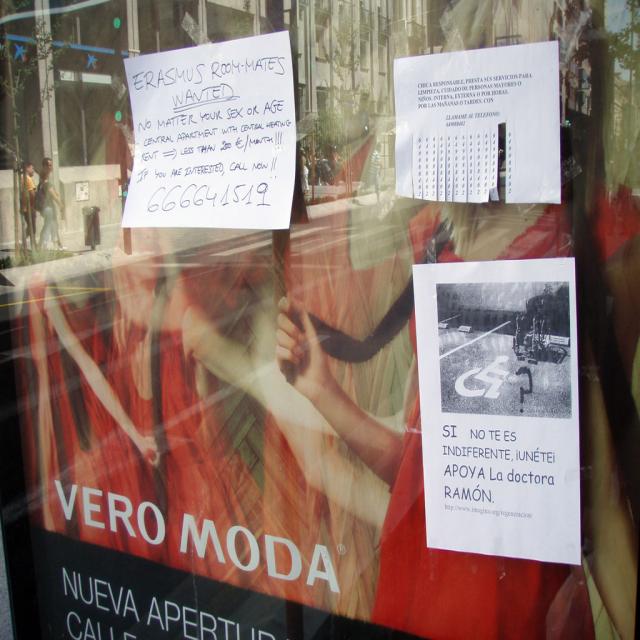 ERASMUS ROOM-MATES
WANTED
NO MATTER YOUR SEX OR AGE
CENTRAL APARTMENT WITH CENTRAL HEATING
RENT => LESS THAN 200 €/MONTH!!!
IF YOU ARE INTERESTED, CALL NOW!!
666641519
CHICA RESPONSABLE, PRESTA SUS SERVICIOS PARA
LIMPIEZA, CUIDADO DE PERSONAS MAYORES O
NIÑOS. INTERNA, EXTERNA O POR HORAS.
POR LAS MAÑANAS O TARDES. CON
LLAMAME AL TELEFONO
SI NO TE ES
INDIFERENTE, ¡ÚNETE!
APOYA La doctora
RAMÓN.
VERO MODA®
NUEVA APERTUR
CALLE